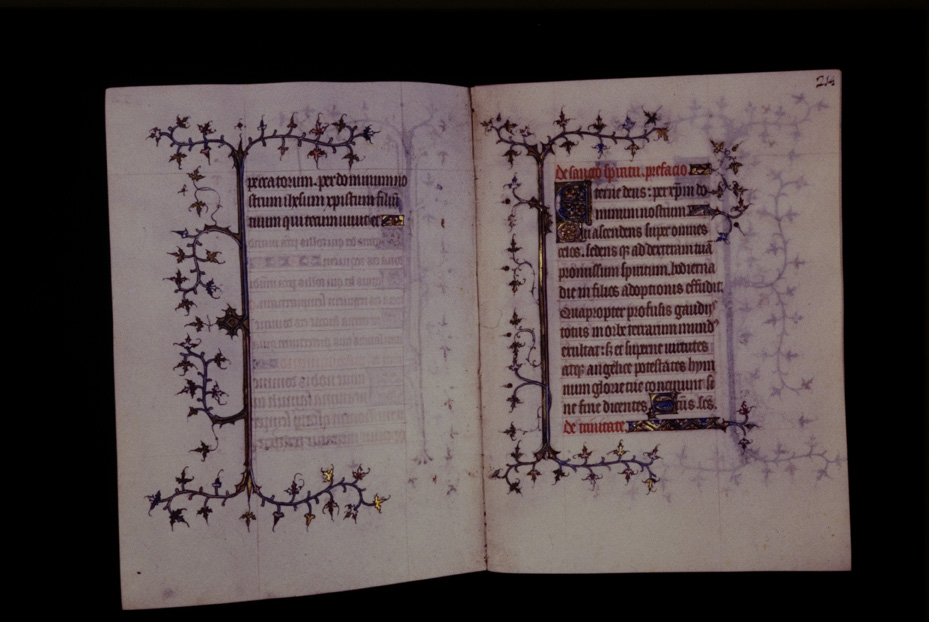 peccatorum. per dominum no
strum ihesum xpistum filiū
tuum qui tecum uiuit et
24
De sancto spiritu. prefacio
Eterne deus: per xp̄m do
minum nostrum
Qui ascendens super omnes
celos. sedens qꝫ ad dexteram tuā
promissum spiritum. hodierna
die in filios adoptionis effudit.
Quapropter profusis gaudijs
totus in orbe terrarum mundꝰ
exultat: sꝫ et superne uirtutes
atqꝫ angelice potestates hym
num glorie tue concinunt si
ne fine dicentes. Sc̄us. sc̄s.
De trinitate.